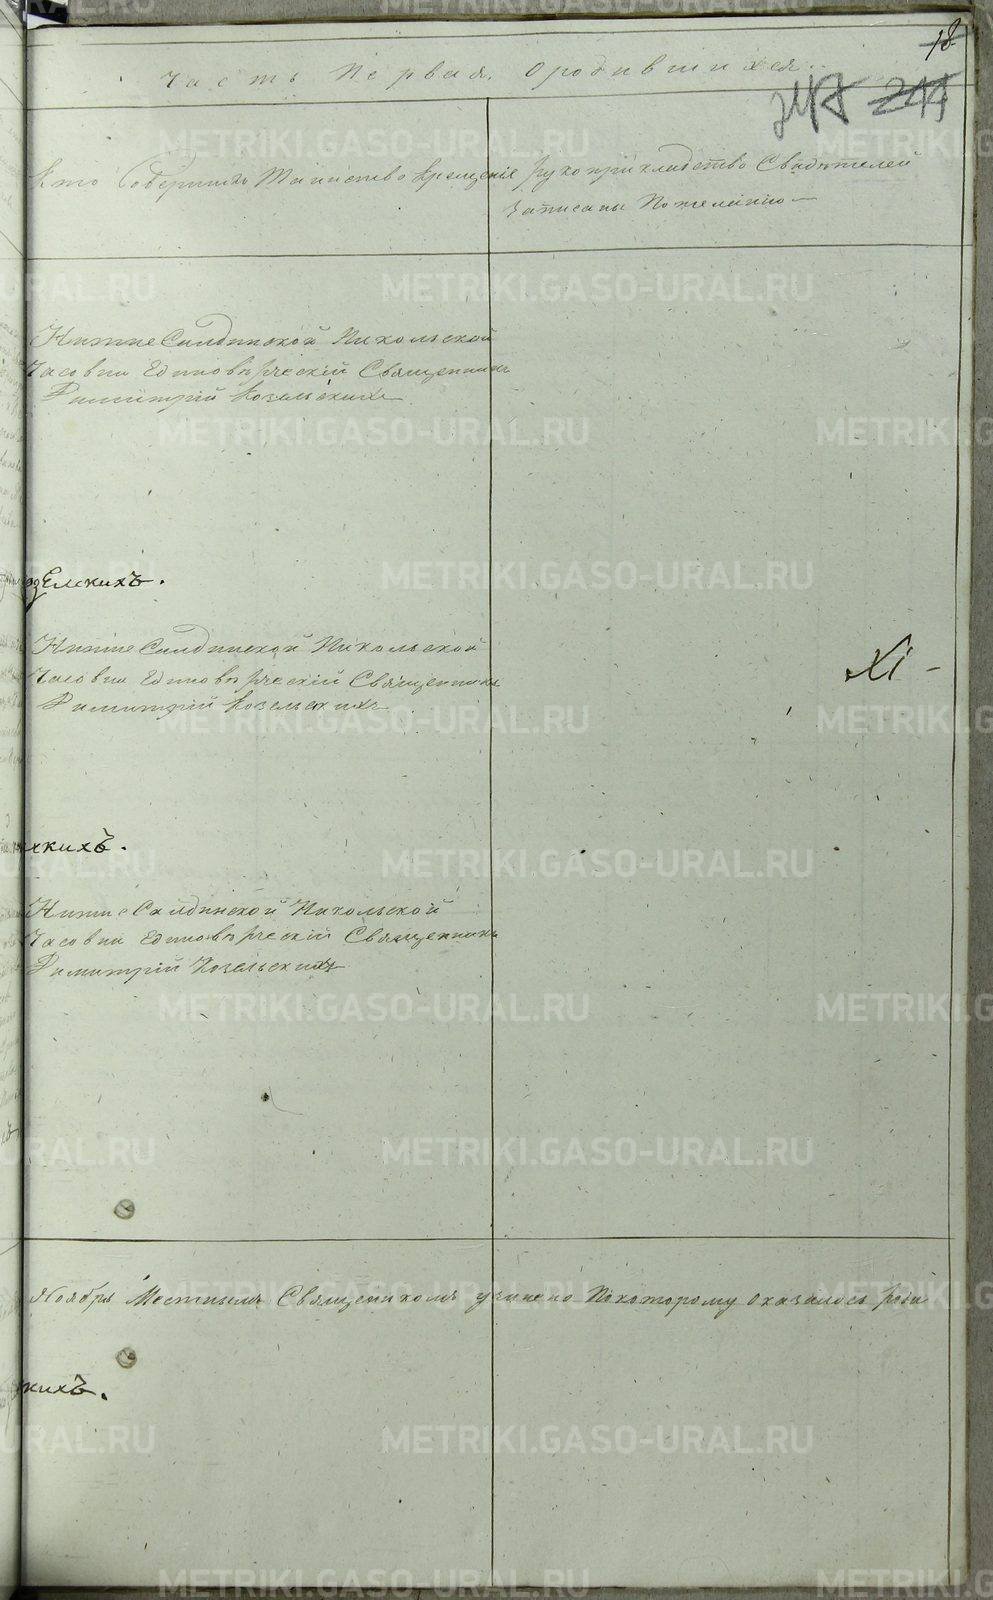 18
Часть Первая. О родившихся.
217 211
Кто Совершалъ Таинство Крещенія
Рукоприкладство Свидѣтелей
Записаны По желанію
Нижне Салдинской Никольской
Часовни Единовѣрческій Священникъ
Димитрій Козельскихъ
озелскихъ.
Нижне Салдинской Никольской
Часовни Единовѣрческій Священникъ
Димитрій Козельскихъ
XI
скихъ.
Нижне Салдинской Никольской
Часовни Единовѣрческій Священникъ
Димитрій Козельскихъ
Ноябрь Местнымъ Священикомъ учинено По которому оказалось роди
кихъ.
METRIKI.GASO-URAL.RU